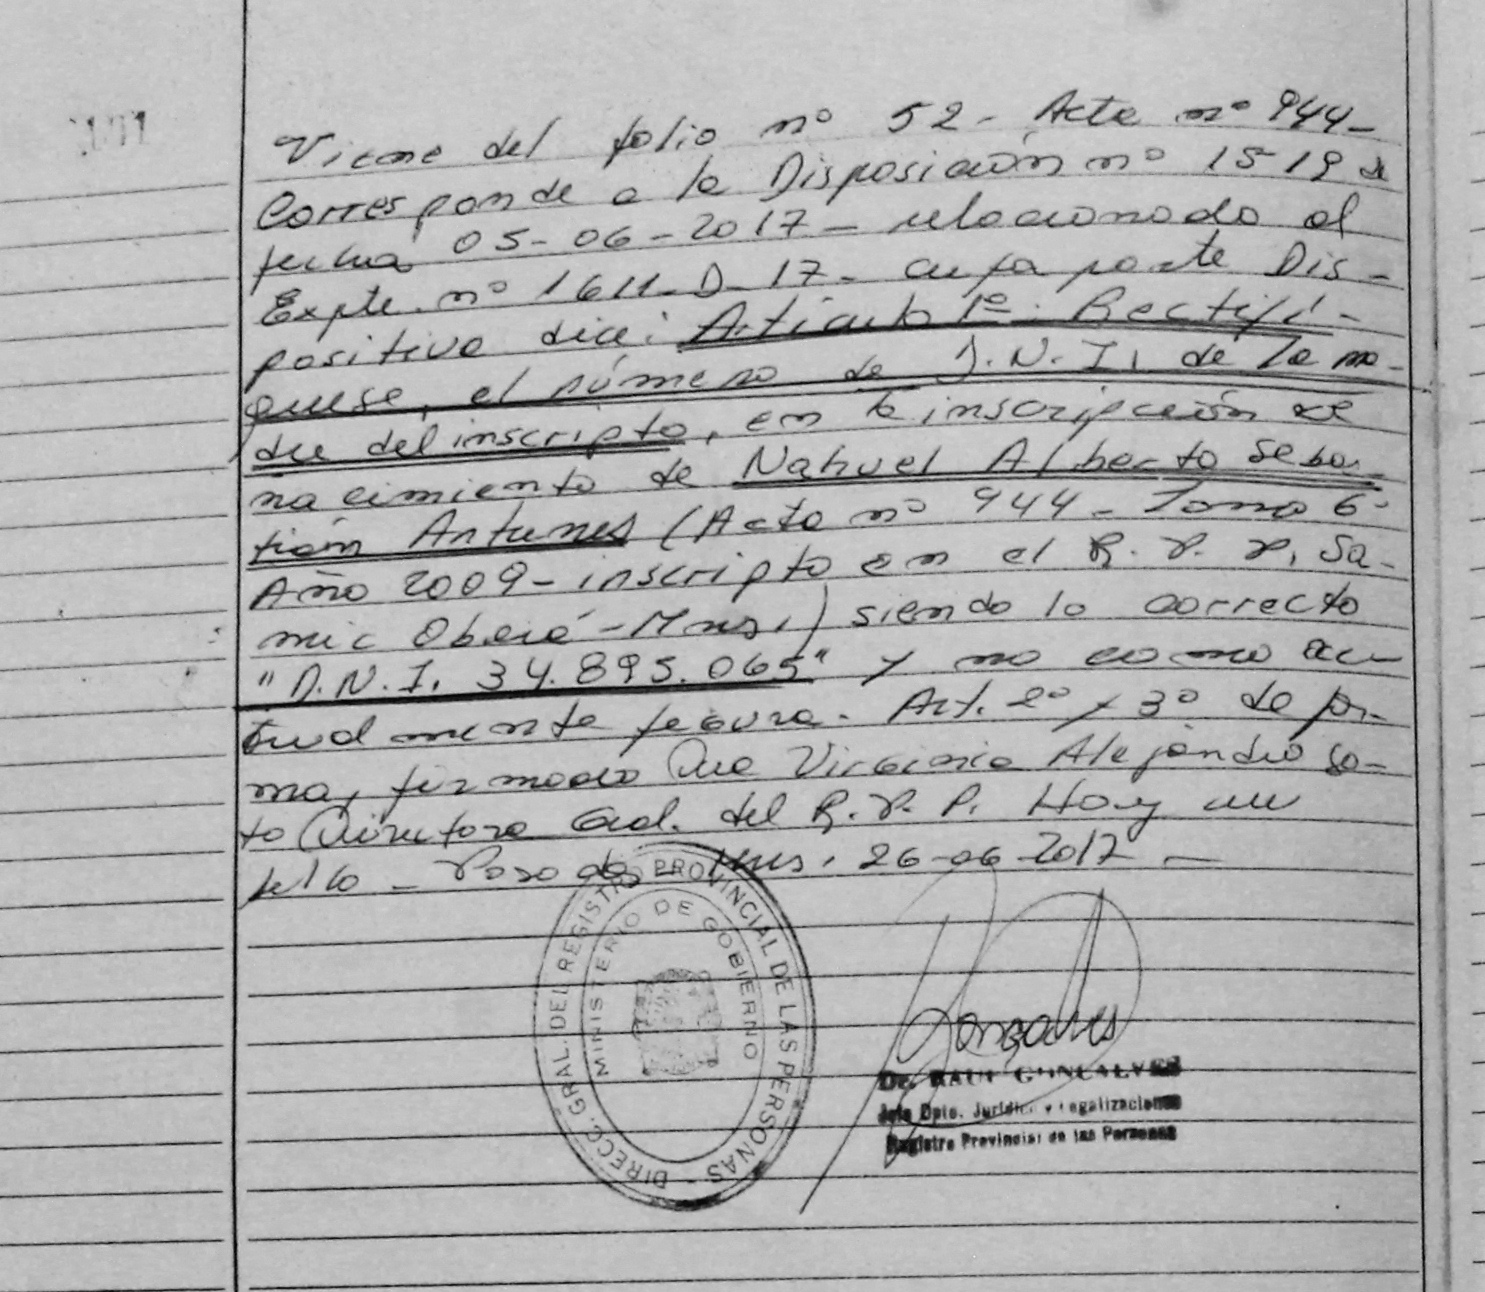 Viene del folio nº 52 - Acta nº 944 -
Corresponde a la Disposición nº 1519 de
fecha 05-06-2017 - relacionado al
Expte. nº 1611-D-17- cuya parte Dis-
positiva dice: Artículo 1º: Rectifí-
quese, el número de D.N.I. de la ma-
dre del inscripto, en la inscripción de
nacimiento de Nahuel Alberto Sebas
tián Antunes (Acta nº 944 - Tomo 6-
Año 2009 - inscripto en el R.P.P. Sa-
mic Oberá - Mnes.) siendo lo correcto
"D.N.I. 34.895.065" y no como ac-
tualmente figura. Art. 2º y 3º de for-
ma, firmado Dra Virginia Alejandra So-
to Directora Gral. del R.P.P. Hay un
sello - Posadas - Mnes. 26-06-2017 -
DIRECC. GRAL. DEL REGISTRO PROVINCIAL DE LAS PERSONAS -
MINISTERIO DE GOBIERNO
Dr. RAUL GONCALVES
Jefe Dpto. Jurídico y Legalizaciones
Registro Provincial de las Personas